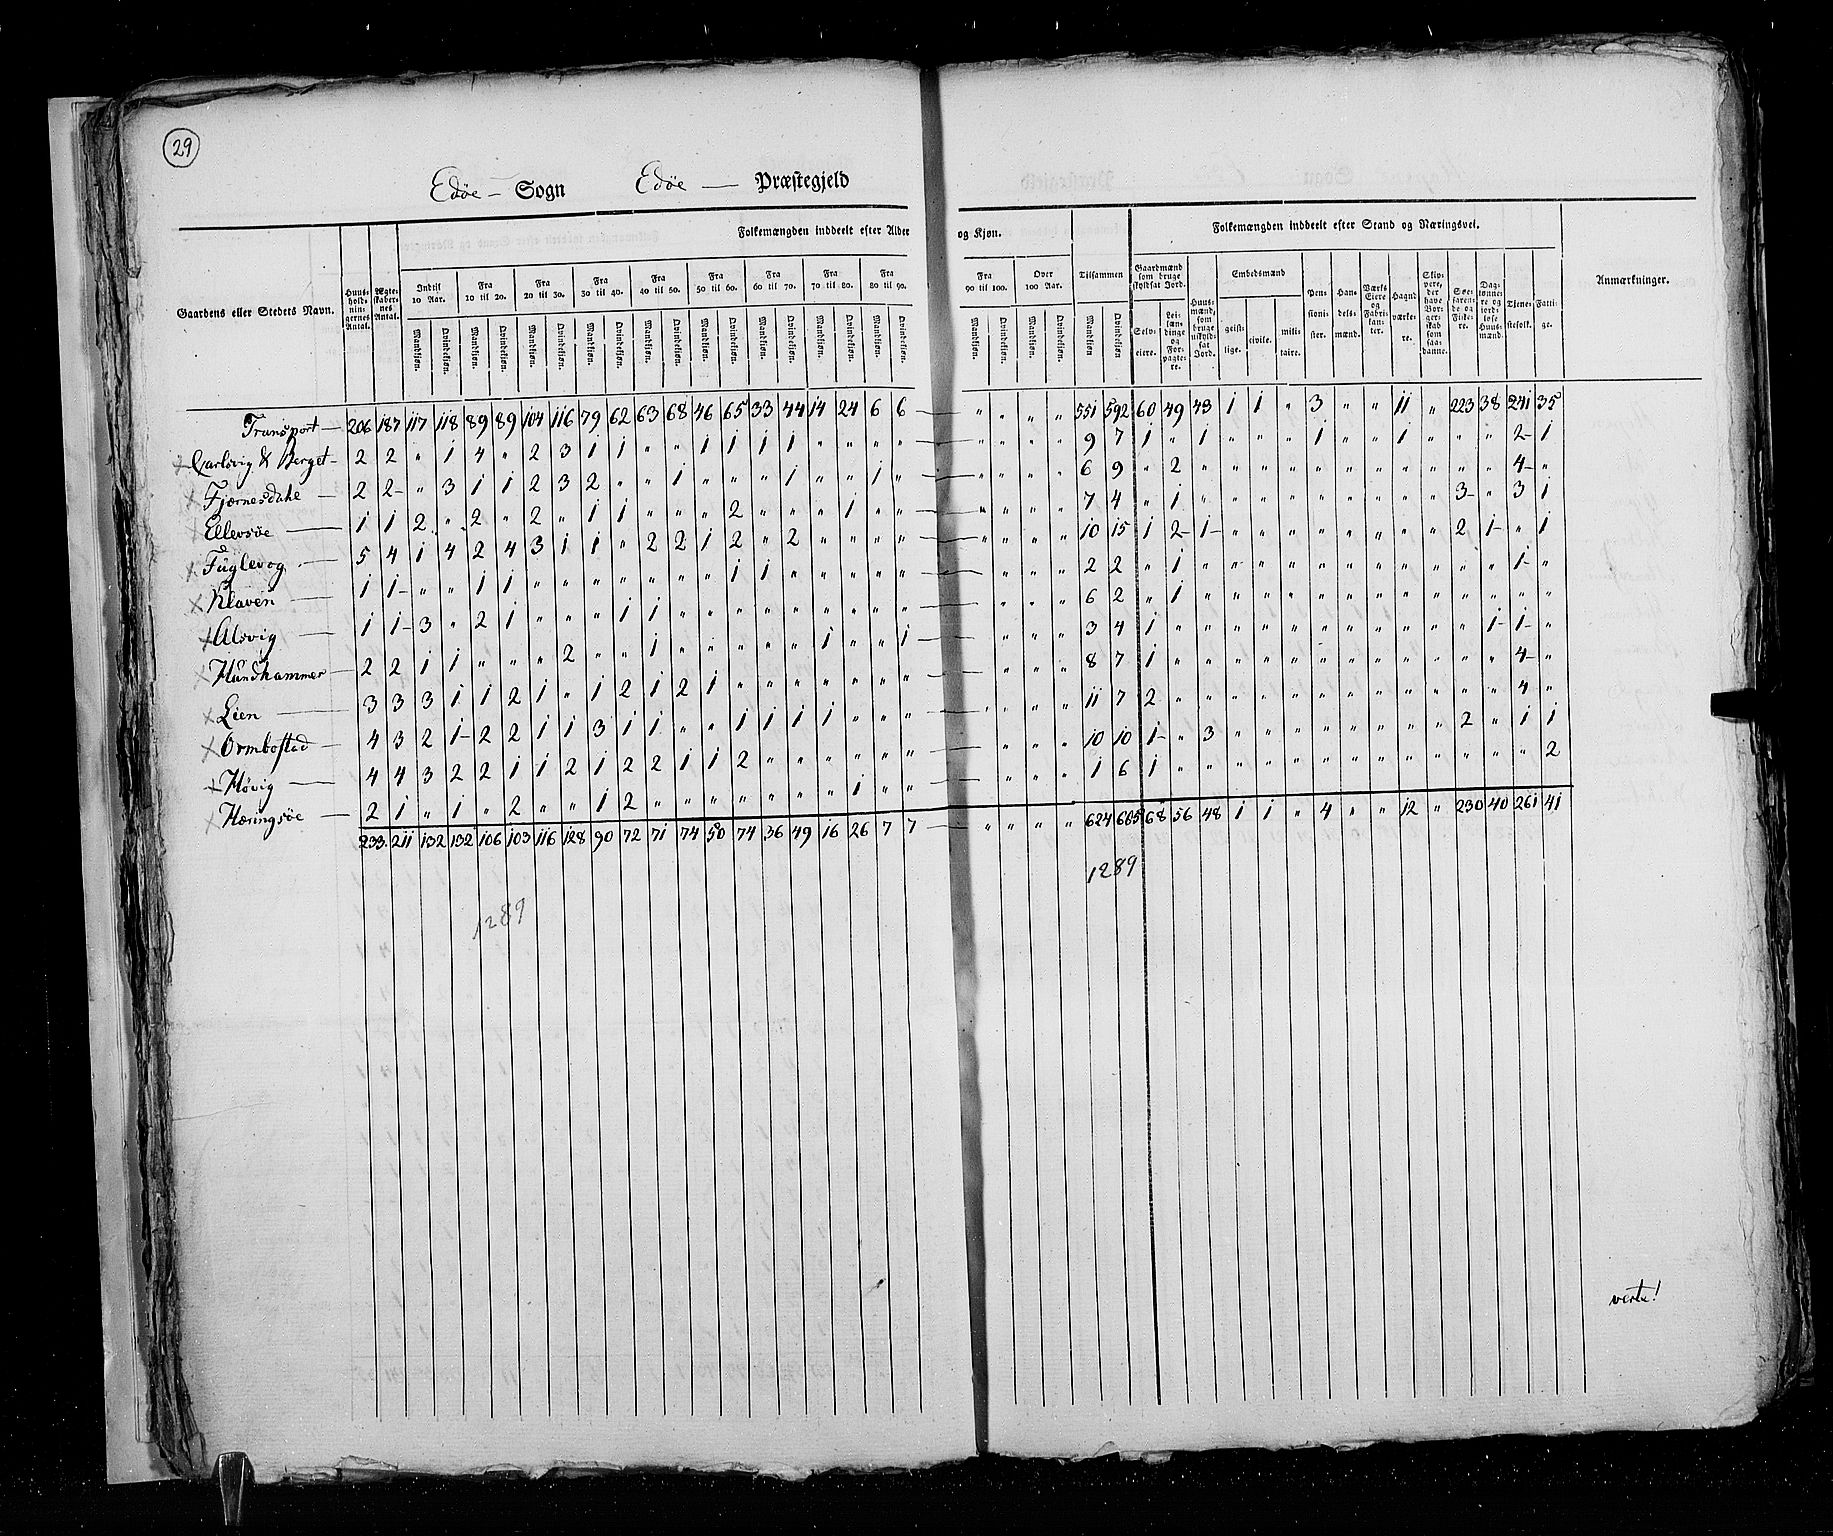 29
Edøe — Sogn Edøe — Præstegjeld
Folkemængden inddeelt efter Alder og Kjøn. Folkemængden inddeelt efter Stand og Næringsvei.
Gaardens eller Stedets Navn. Huusholdningernes Antal. Ægteskabernes Antal. Indtil 10 Aar. Fra 10 til 20. Fra 20 til 30. Fra 30 til 40. Fra 40 til 50. Fra 50 til 60. Fra 60 til 70. Fra 70 til 80. Fra 80 til 90. Fra 90 til 100. Over 100 Aar. Tilsammen Gaardmænd som bruge skyldsat Jord. Huusmænd, som bruge uskyldsat Jord. Embedsmænd Pensionister. Handelsmænd. Værks Eiere og Fabrikanter. Haandværkere. Skippere, der have Borgerskab som saadanne. Søefarende og Fiskere. Daglønnere og jordløse Huusmænd. Tjenestefolk. Fattige. Anmærkninger.
Mandkjøn. Qvindekjøn. Mandkjøn. Qvindekjøn. Mandkjøn. Qvindekjøn. Mandkjøn. Qvindekjøn. Mandkjøn. Qvindekjøn. Mandkjøn. Qvindekjøn. Mandkjøn. Qvindekjøn. Mandkjøn. Qvindekjøn. Mandkjøn. Qvindekjøn. Mandkjøn. Qvindekjøn. Mandkjøn. Qvindekjøn. Mandkjøn Qvindekjøn Selveiere. Leilændinge og Forpagtere. geistlige. civile. militaire.
Transport — 206 187 117 118 89 89 104 116 79 62 63 68 46 65 33 44 14 24 6 6 — " " " " 551 592 60 49 43 1 1 " 3 " " 11 " 223 38 241 35
& Berget — 2 2 " 1 4 " 2 3 1 1 " " 1 1 1 1 " " " " — " " " " 9 7 1 " 1 " " " 1 " " 1 " " " 2 1
Fjærnesdahle — 2 2 " 3 1 1 2 3 2 " " 1 " " " 1 " " 1 " — " " " " 6 9 " 2 " " " " " " " " " " " 4 "
Ellevsøe — 1 1 2 " 2 " 2 " 1 1 " " " 2 " " " 1 " " — " " " " 7 4 " 1 " " " " " " " " " 3 " 3 1
Fuglevog — 5 4 1 4 2 4 3 1 1 " 2 2 1 2 " 2 " " " " — " " " " 10 15 1 2 1 " " " " " " " " 2 1 " 1
Klaven — 1 1 " " 1 1 " " " " " " " 1 1 " " " " " — " " " 2 2 " 1 " " " " " " " " " " " 1 "
Alsvig — 1 1 3 " 2 1 " " " 1 1 " " " " " " " " " — " " " 6 2 " 1 " " " " " " " " " " " " "
Hundhammer — 2 2 1 1 " " " 2 " " 1 " " " " " 1 " " 1 — " " " 3 4 1 " " " " " " " " " " " 1 1 "
Lien — 3 3 3 1 1 2 1 " 1 2 1 2 1 " " " " " " " — " " " 8 7 1 " " " " " " " " " " " " 4 "
Ormbostad — 4 3 2 1 2 2 1 1 3 1 1 " " 1 1 1 1 " " " — " " " " 11 7 2 " " " " " " " " " " " " 4 "
Høvig — 4 4 3 2 2 1 1 2 1 2 2 1 1 2 " " " " " " — " " " 10 10 1 " 3 " " " " " " " " 2 " 1 1
Hæringsøe — 2 1 " 1 " 2 " " 1 2 " " " " " " " 1 " " — " " " 1 6 1 " " " " " " " " " " " " " 2
233. 211 132 132 106 103 116 128 90 72 71 74 50 74 36 49 16 26 7 7 — " " " " 624 665 68 56 48 1 1 " 4 " " 12 " 230 40 261 41
1289
1289
verte!